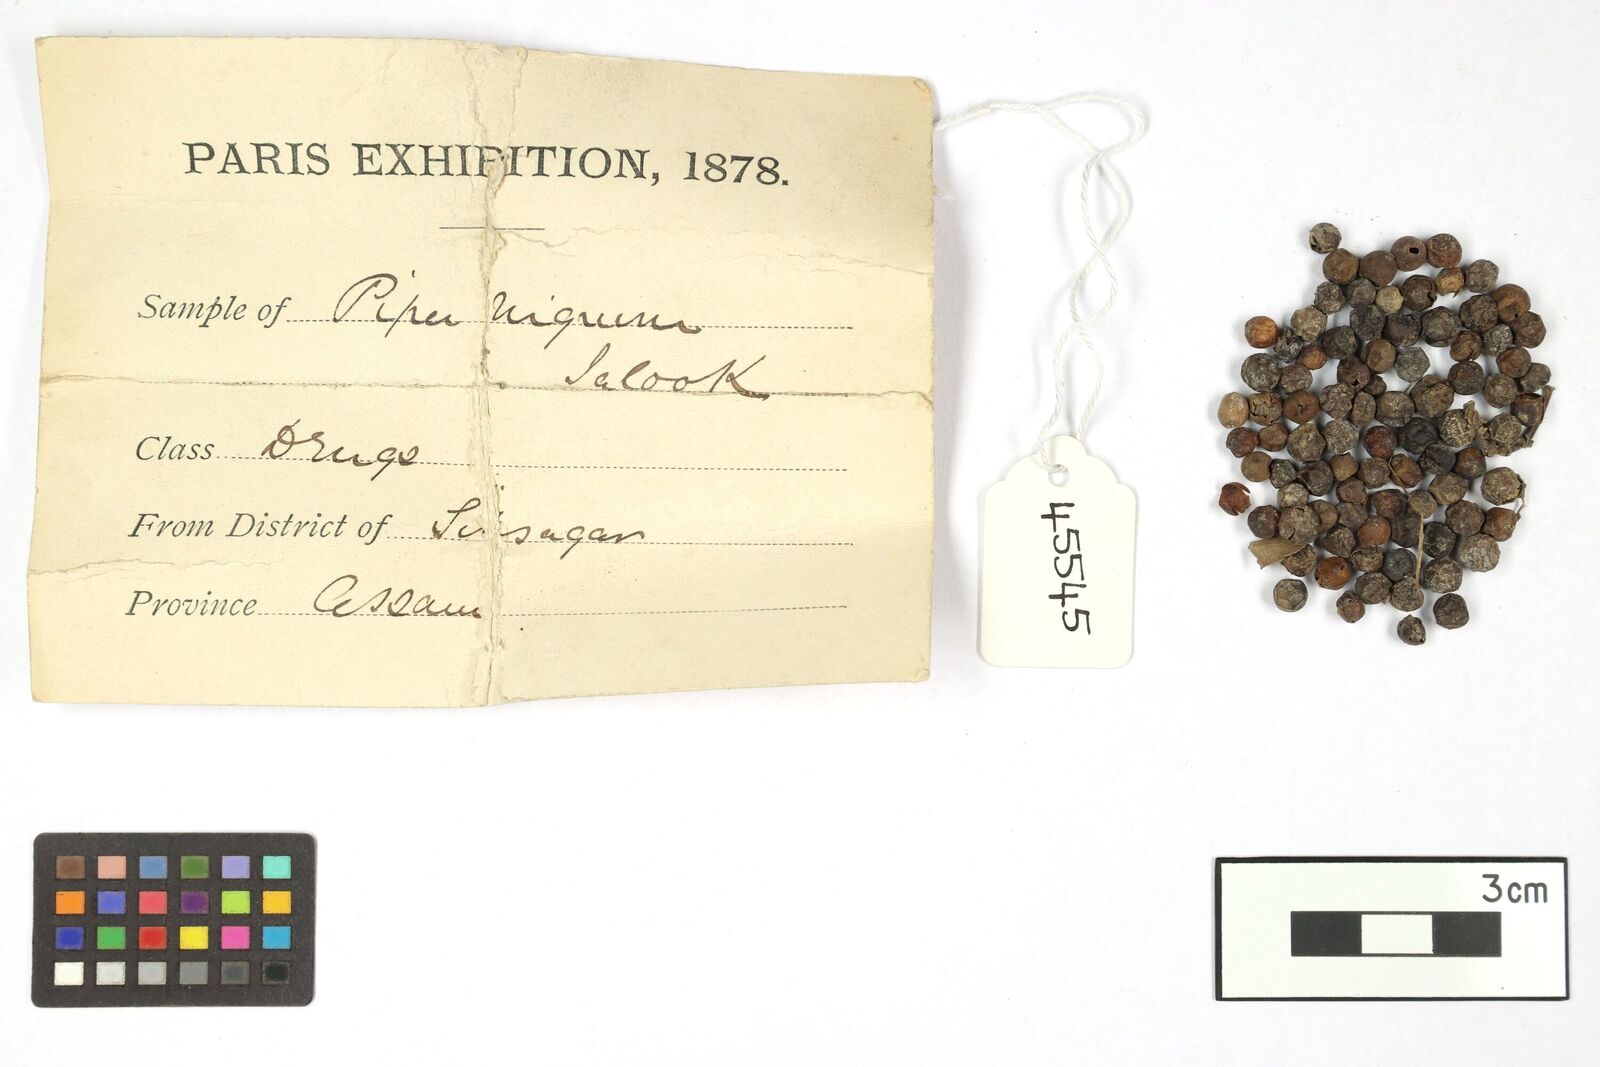 PARIS EXHIBITION, 1878.
Sample of Piper Nigrum
Jalook
Class Drugs
From District of Sibsagar
Province Assam
45545
3cm